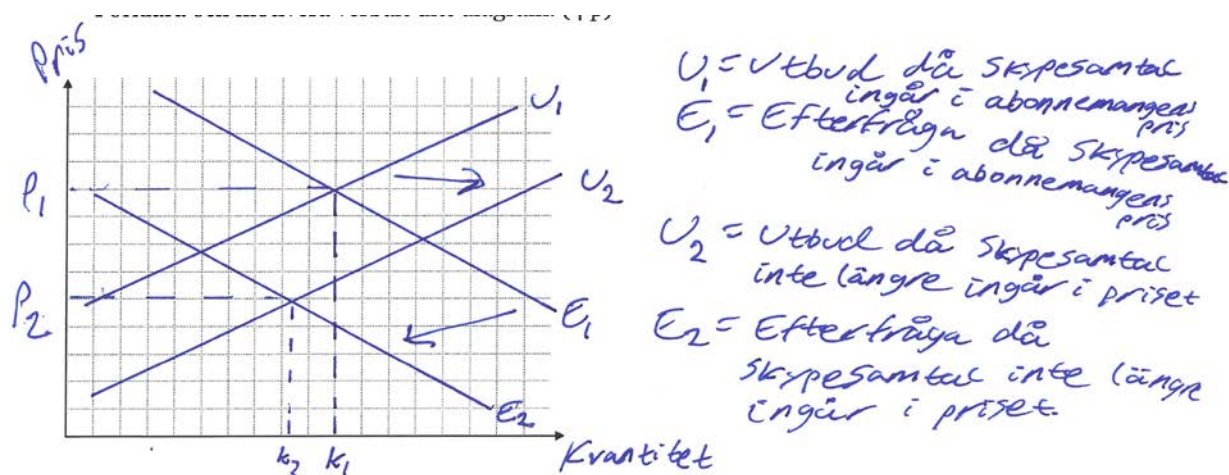 Pris
U₁
U₂
P₁
P₂
E₁
E₂
k₂ k₁
Kvantitet
U₁ = Utbud då skypesamtal
ingår i abonnemangens
pris
E₁ = Efterfråga då skypesamtal
ingår i abonnemangens
pris
U₂ = Utbud då skypesamtal
inte längre ingår i priset
E₂ = Efterfråga då
skypesamtal inte längre
ingår i priset.